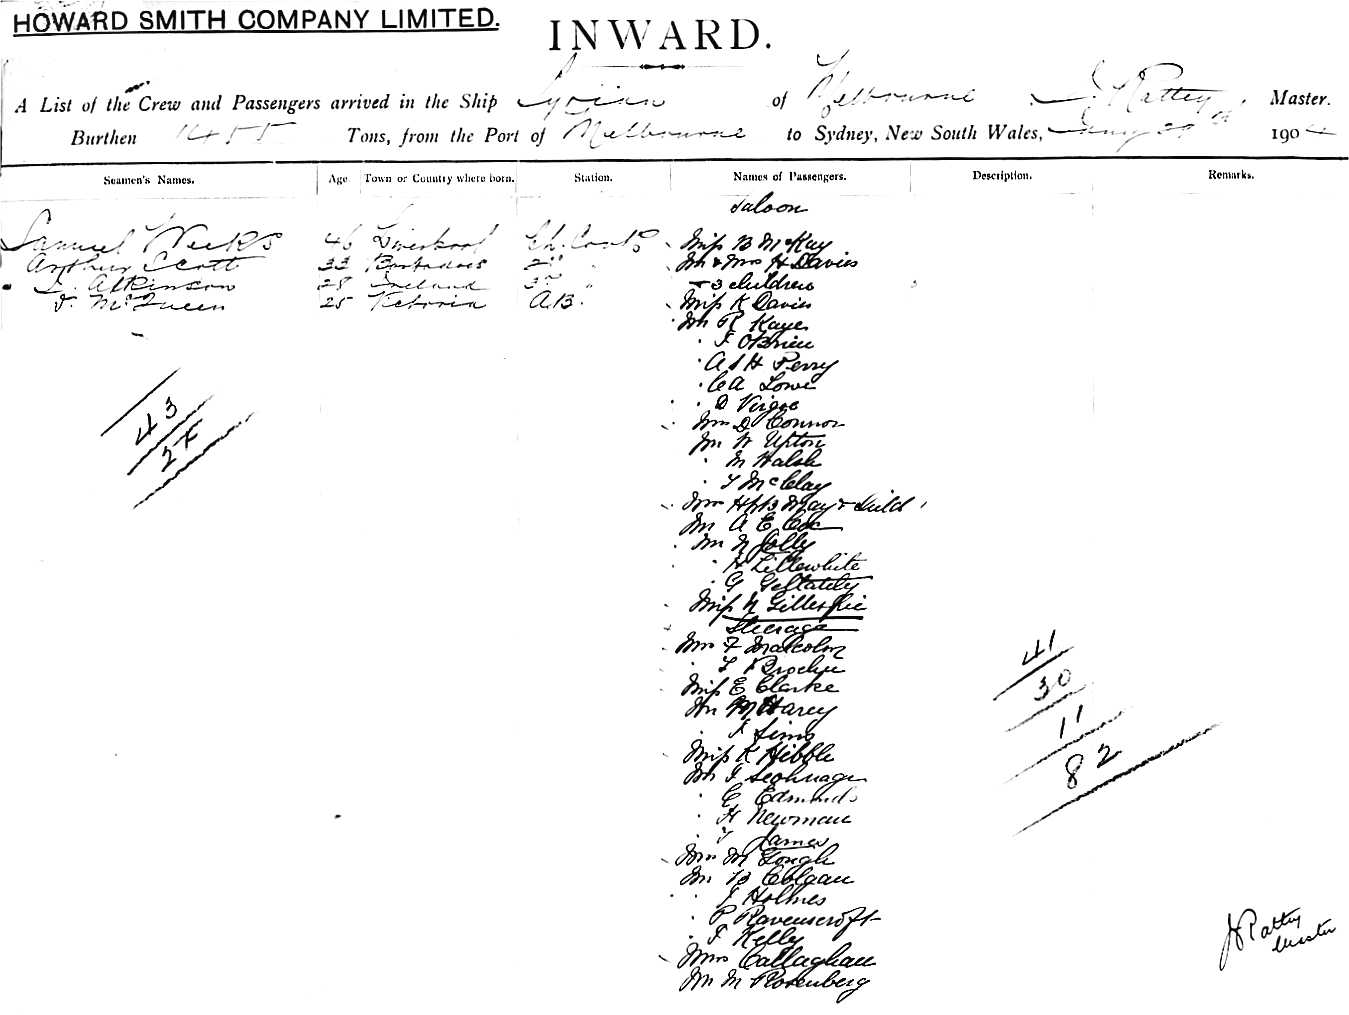 HOWARD SMITH COMPANY LIMITED.
INWARD.
A List of the Crew and Passengers arrived in the Ship Syrian of Melbourne, J. Rattey Master.
Burthen 1455 Tons, from the Port of Melbourne to Sydney, New South Wales, 29th 190
Seamen's Names. Age Town or Country where born. Station. Names of Passengers. Description. Remarks.
Saloon
Samuel Weeks 46 Liverpool Ch. Cook
Arthur Scott 33 Barbadoes 2nd "
J. Atkinson 28 Ireland 3rd "
J. McQueen 25 Victoria A.B.
Miss B McKay
Mr & Mrs H Davies
+ 3 children
Miss K Davies
Mr R Kaye
" J OBrien
" A S H Perry
" C A Lowe
" D Virgoe
Mrs D Connor
Mr W Upton
" M Walsh
" T McClay
Mrs May & Child
Mr A E Cox
Mr N Jolly
" H Lillewhite
" G
Miss N Gillespie
Steerage
Mrs F Malcolm
" T
Miss E Clarke
Mr M Harey
" J Sims
Miss K Hibble
Mr J
" E Edmunds
" H Newman
" T James
Mrs M Gough
Mr B Colgan
" J Holmes
" P Ravenscroft
" J Kelly
Mrs Callaghan
Mr M Rosenberg
43
27
41
30
11
82
J Rattey
Master